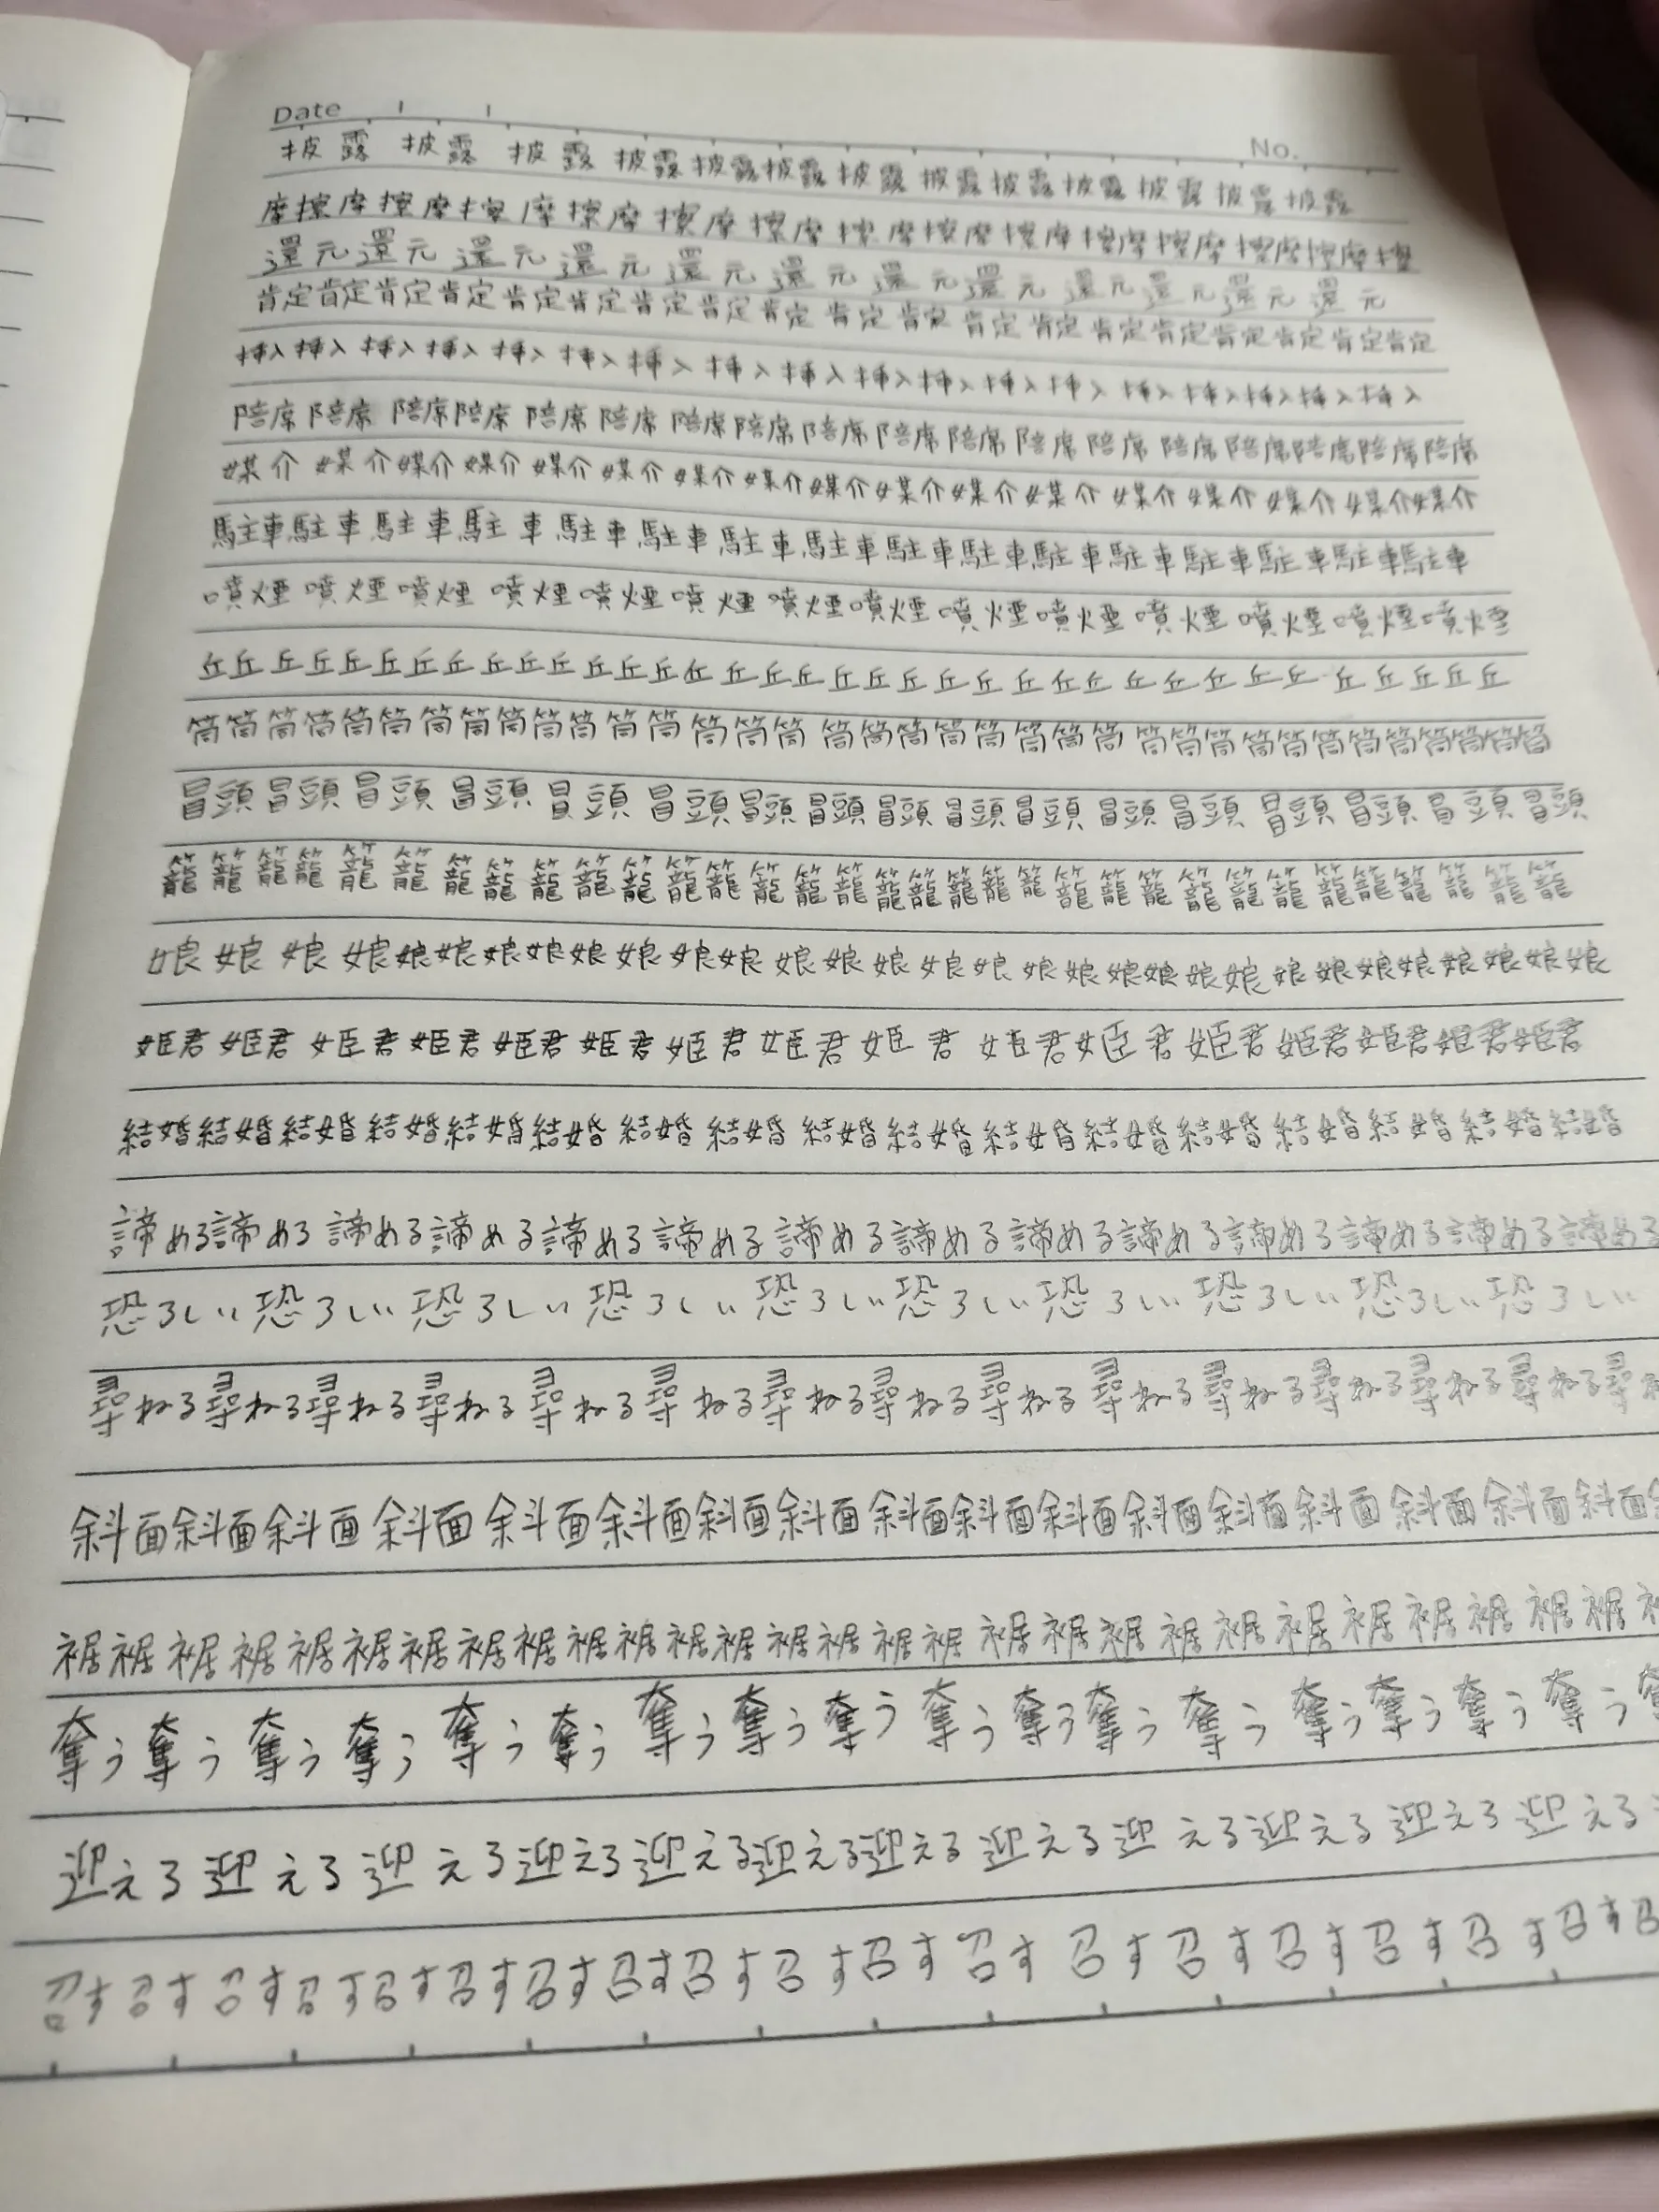 Date
No.
披露 披露 披露 披露 披露 披露 披露 披露 披露 披露 披露 披露 披露
摩擦 摩擦 摩擦 摩擦 摩擦 摩擦 摩擦 摩擦 摩擦 摩擦 摩擦 摩擦 摩擦 摩擦
還元 還元 還元 還元 還元 還元 還元 還元 還元 還元 還元 還元
肯定 肯定 肯定 肯定 肯定 肯定 肯定 肯定 肯定 肯定 肯定 肯定 肯定 肯定 肯定 肯定 肯定 肯定 肯定
挿入 挿入 挿入 挿入 挿入 挿入 挿入 挿入 挿入 挿入 挿入 挿入 挿入 挿入 挿入 挿入 挿入 挿入
陪席 陪席 陪席 陪席 陪席 陪席 陪席 陪席 陪席 陪席 陪席 陪席 陪席 陪席 陪席 陪席 陪席 陪席
媒介 媒介 媒介 媒介 媒介 媒介 媒介 媒介 媒介 媒介 媒介 媒介 媒介 媒介 媒介 媒介 媒介
駐車 駐車 駐車 駐車 駐車 駐車 駐車 駐車 駐車 駐車 駐車 駐車 駐車 駐車 駐車 駐車
噴煙 噴煙 噴煙 噴煙 噴煙 噴煙 噴煙 噴煙 噴煙 噴煙 噴煙 噴煙 噴煙 噴煙
丘丘丘丘丘丘丘丘丘丘丘丘丘丘丘丘丘丘丘丘丘丘丘丘丘丘丘丘丘丘丘丘丘丘丘丘
筒筒筒筒筒筒筒筒筒筒筒筒筒筒筒筒筒筒筒筒筒筒筒筒筒筒筒筒筒筒筒筒筒筒筒筒
冒頭 冒頭 冒頭 冒頭 冒頭 冒頭 冒頭 冒頭 冒頭 冒頭 冒頭 冒頭 冒頭 冒頭 冒頭 冒頭 冒頭
籠籠籠籠籠籠籠籠籠籠籠籠籠籠籠籠籠籠籠籠籠籠籠籠籠籠籠籠籠籠籠籠籠
娘娘娘娘娘娘娘娘娘娘娘娘娘娘娘娘娘娘娘娘娘娘娘娘娘娘娘娘娘娘娘
姫君 姫君 姫君 姫君 姫君 姫君 姫君 姫君 姫君 姫君 姫君 姫君 姫君 姫君 姫君 姫君
結婚 結婚 結婚 結婚 結婚 結婚 結婚 結婚 結婚 結婚 結婚 結婚 結婚 結婚 結婚 結婚 結婚
諦める 諦める 諦める 諦める 諦める 諦める 諦める 諦める 諦める 諦める 諦める 諦める 諦める 諦める
恐ろしい 恐ろしい 恐ろしい 恐ろしい 恐ろしい 恐ろしい 恐ろしい 恐ろしい 恐ろしい 恐ろしい
尋ねる 尋ねる 尋ねる 尋ねる 尋ねる 尋ねる 尋ねる 尋ねる 尋ねる 尋ねる 尋ねる 尋ねる 尋ねる 尋ねる 尋
斜面 斜面 斜面 斜面 斜面 斜面 斜面 斜面 斜面 斜面 斜面 斜面 斜面 斜面 斜面 斜面 斜面
裾裾裾裾裾裾裾裾裾裾裾裾裾裾裾裾裾裾裾裾裾裾裾裾裾裾裾裾
奪う 奪う 奪う 奪う 奪う 奪う 奪う 奪う 奪う 奪う 奪う 奪う 奪う 奪う 奪う 奪う 奪う 奪
迎える 迎える 迎える 迎える 迎える 迎える 迎える 迎える 迎える 迎える 迎える 迎える
召す 召す 召す 召す 召す 召す 召す 召す 召す 召す 召す 召す 召す 召す 召す 召す 召す 召す 召